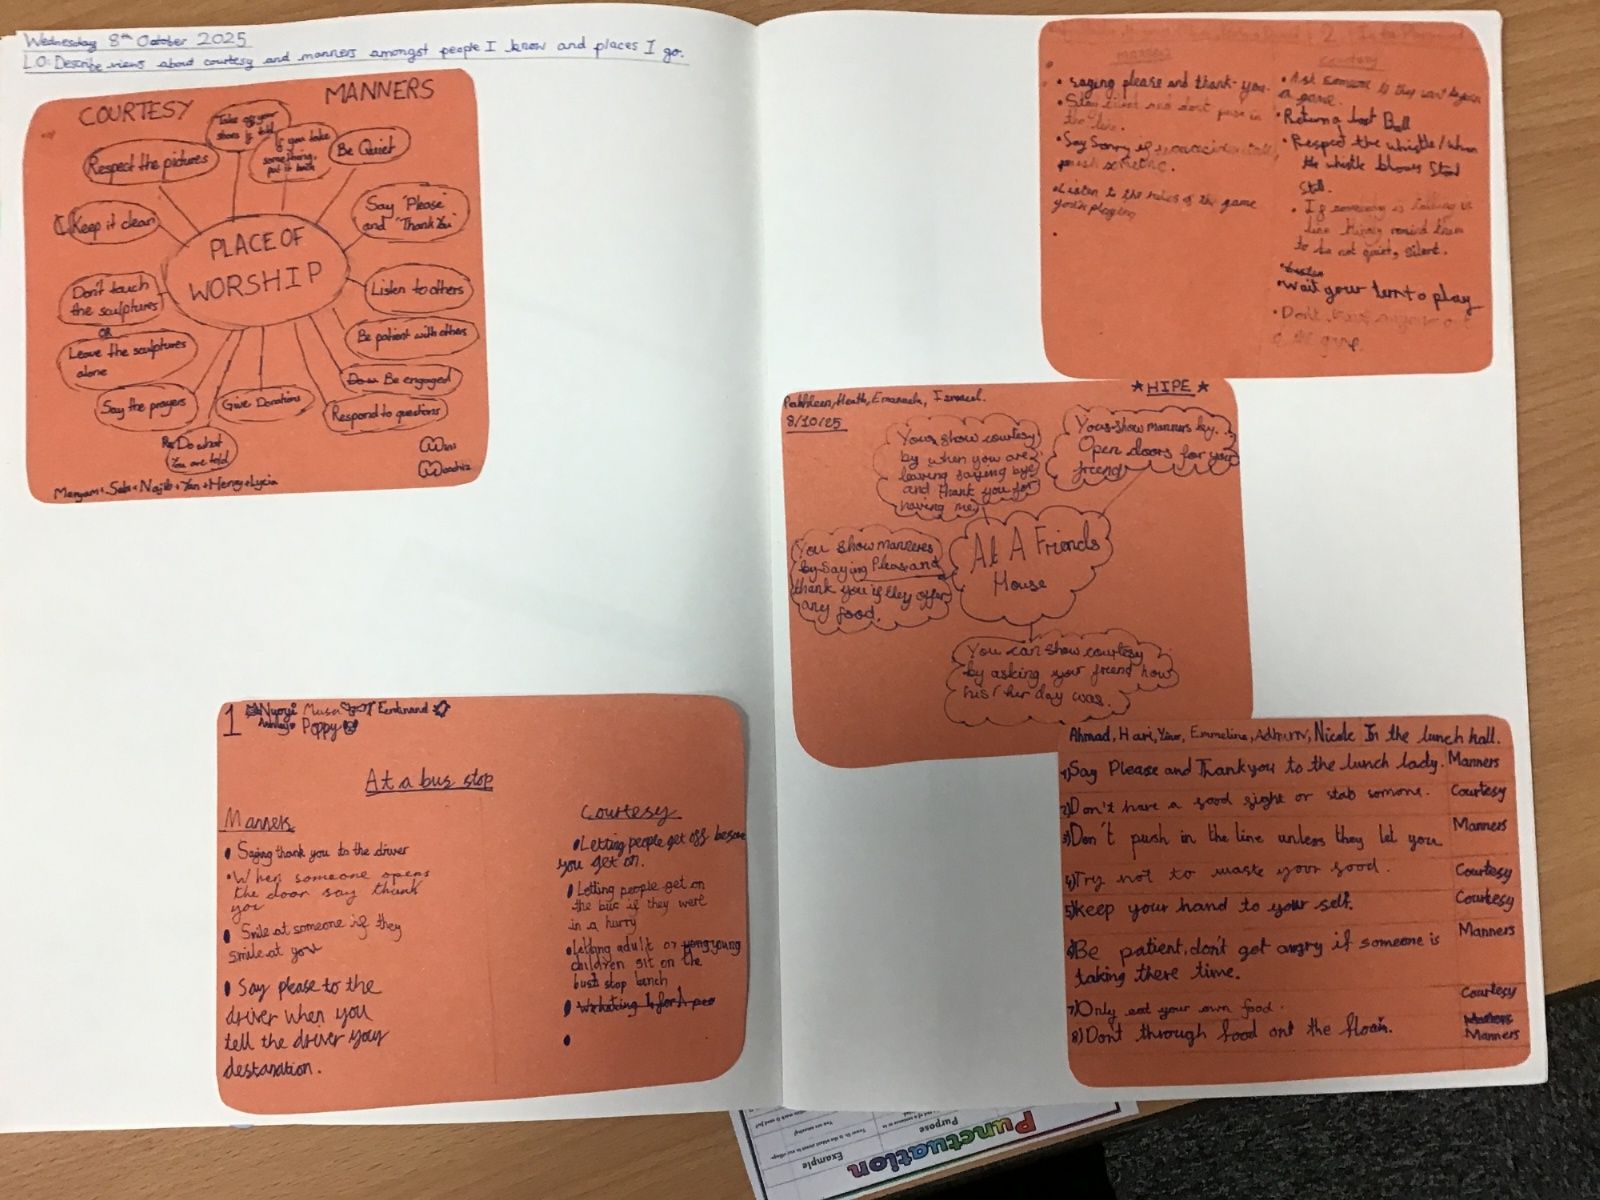 Wednesday 8th October 2025
LO: Describe views about courtesy and manners amongst people I know and places I go.
COURTESY
MANNERS
Take off your
shoes if told
If you take
something,
put it back
Be Quiet
Respect the pictures
Keep it clean
Say "Please"
and "Thank You"
PLACE OF
WORSHIP
Don't touch
the sculptures
OR
Leave the sculptures
alone
Listen to others
Be patient with others
Be engaged
Respond to questions
Give Donations
Say the prayers
Do what
You are told
Maryam + Saba + Najib + Yan + Henry + Lycia
1
Musa Ferdinand
Poppy
At a bus stop
Manners
• Saying thank you to the driver
• When someone opens
the door say thank
you
• Smile at someone if they
smile at you
• Say please to the
driver when you
tell the driver your
destanation.
Courtesy
• Letting people get off before
you get on.
• Letting people get on
the bus if they were
in a hurry
• Letting adult or young
children sit on the
bust stop bench
2
manners
• saying please and thank-you.
• Stay and don't push in
the line.
• Say Sorry if you accidentally
push someone.
• Listen to the rules of the game
your playing
courtesy
• Ask someone if they want to join
a game.
• Return a lost Ball
• Respect the whistle/when
the whistle blows Stand
Still.
• If somebody is talking in
line kindly remind them
to be quiet, silent.
• Wait your turn to play
• Don't anyone out
of the game.
★ HIPE ★
Heath, Emanuela,
8/10/25
You show courtesy
by when you are
leaving saying bye
and thank you for
having me.
You show manners by..
Open doors for your
friend
You show manneres
by saying Please and
thank you if they offer
any food.
At A Friends
House
You can show courtesy
by asking your friend how
his / her day was.
Ahmad, Hari, Emmeline, Nicole In the lunch hall.
1) Say Please and Thankyou to the lunch lady. Manners
2) Don't have a food fight or stab somone. Courtesy
3) Don't push in the line unless they let you Manners
4) Try not to waste your food. Courtesy
5) Keep your hand to your self. Courtesy
6) Be patient, don't get angry if someone is Manners
taking there time.
7) Only eat your own food. Courtesy
8) Don't through food ont the floar. Manners
Punctuation
Purpose
Example